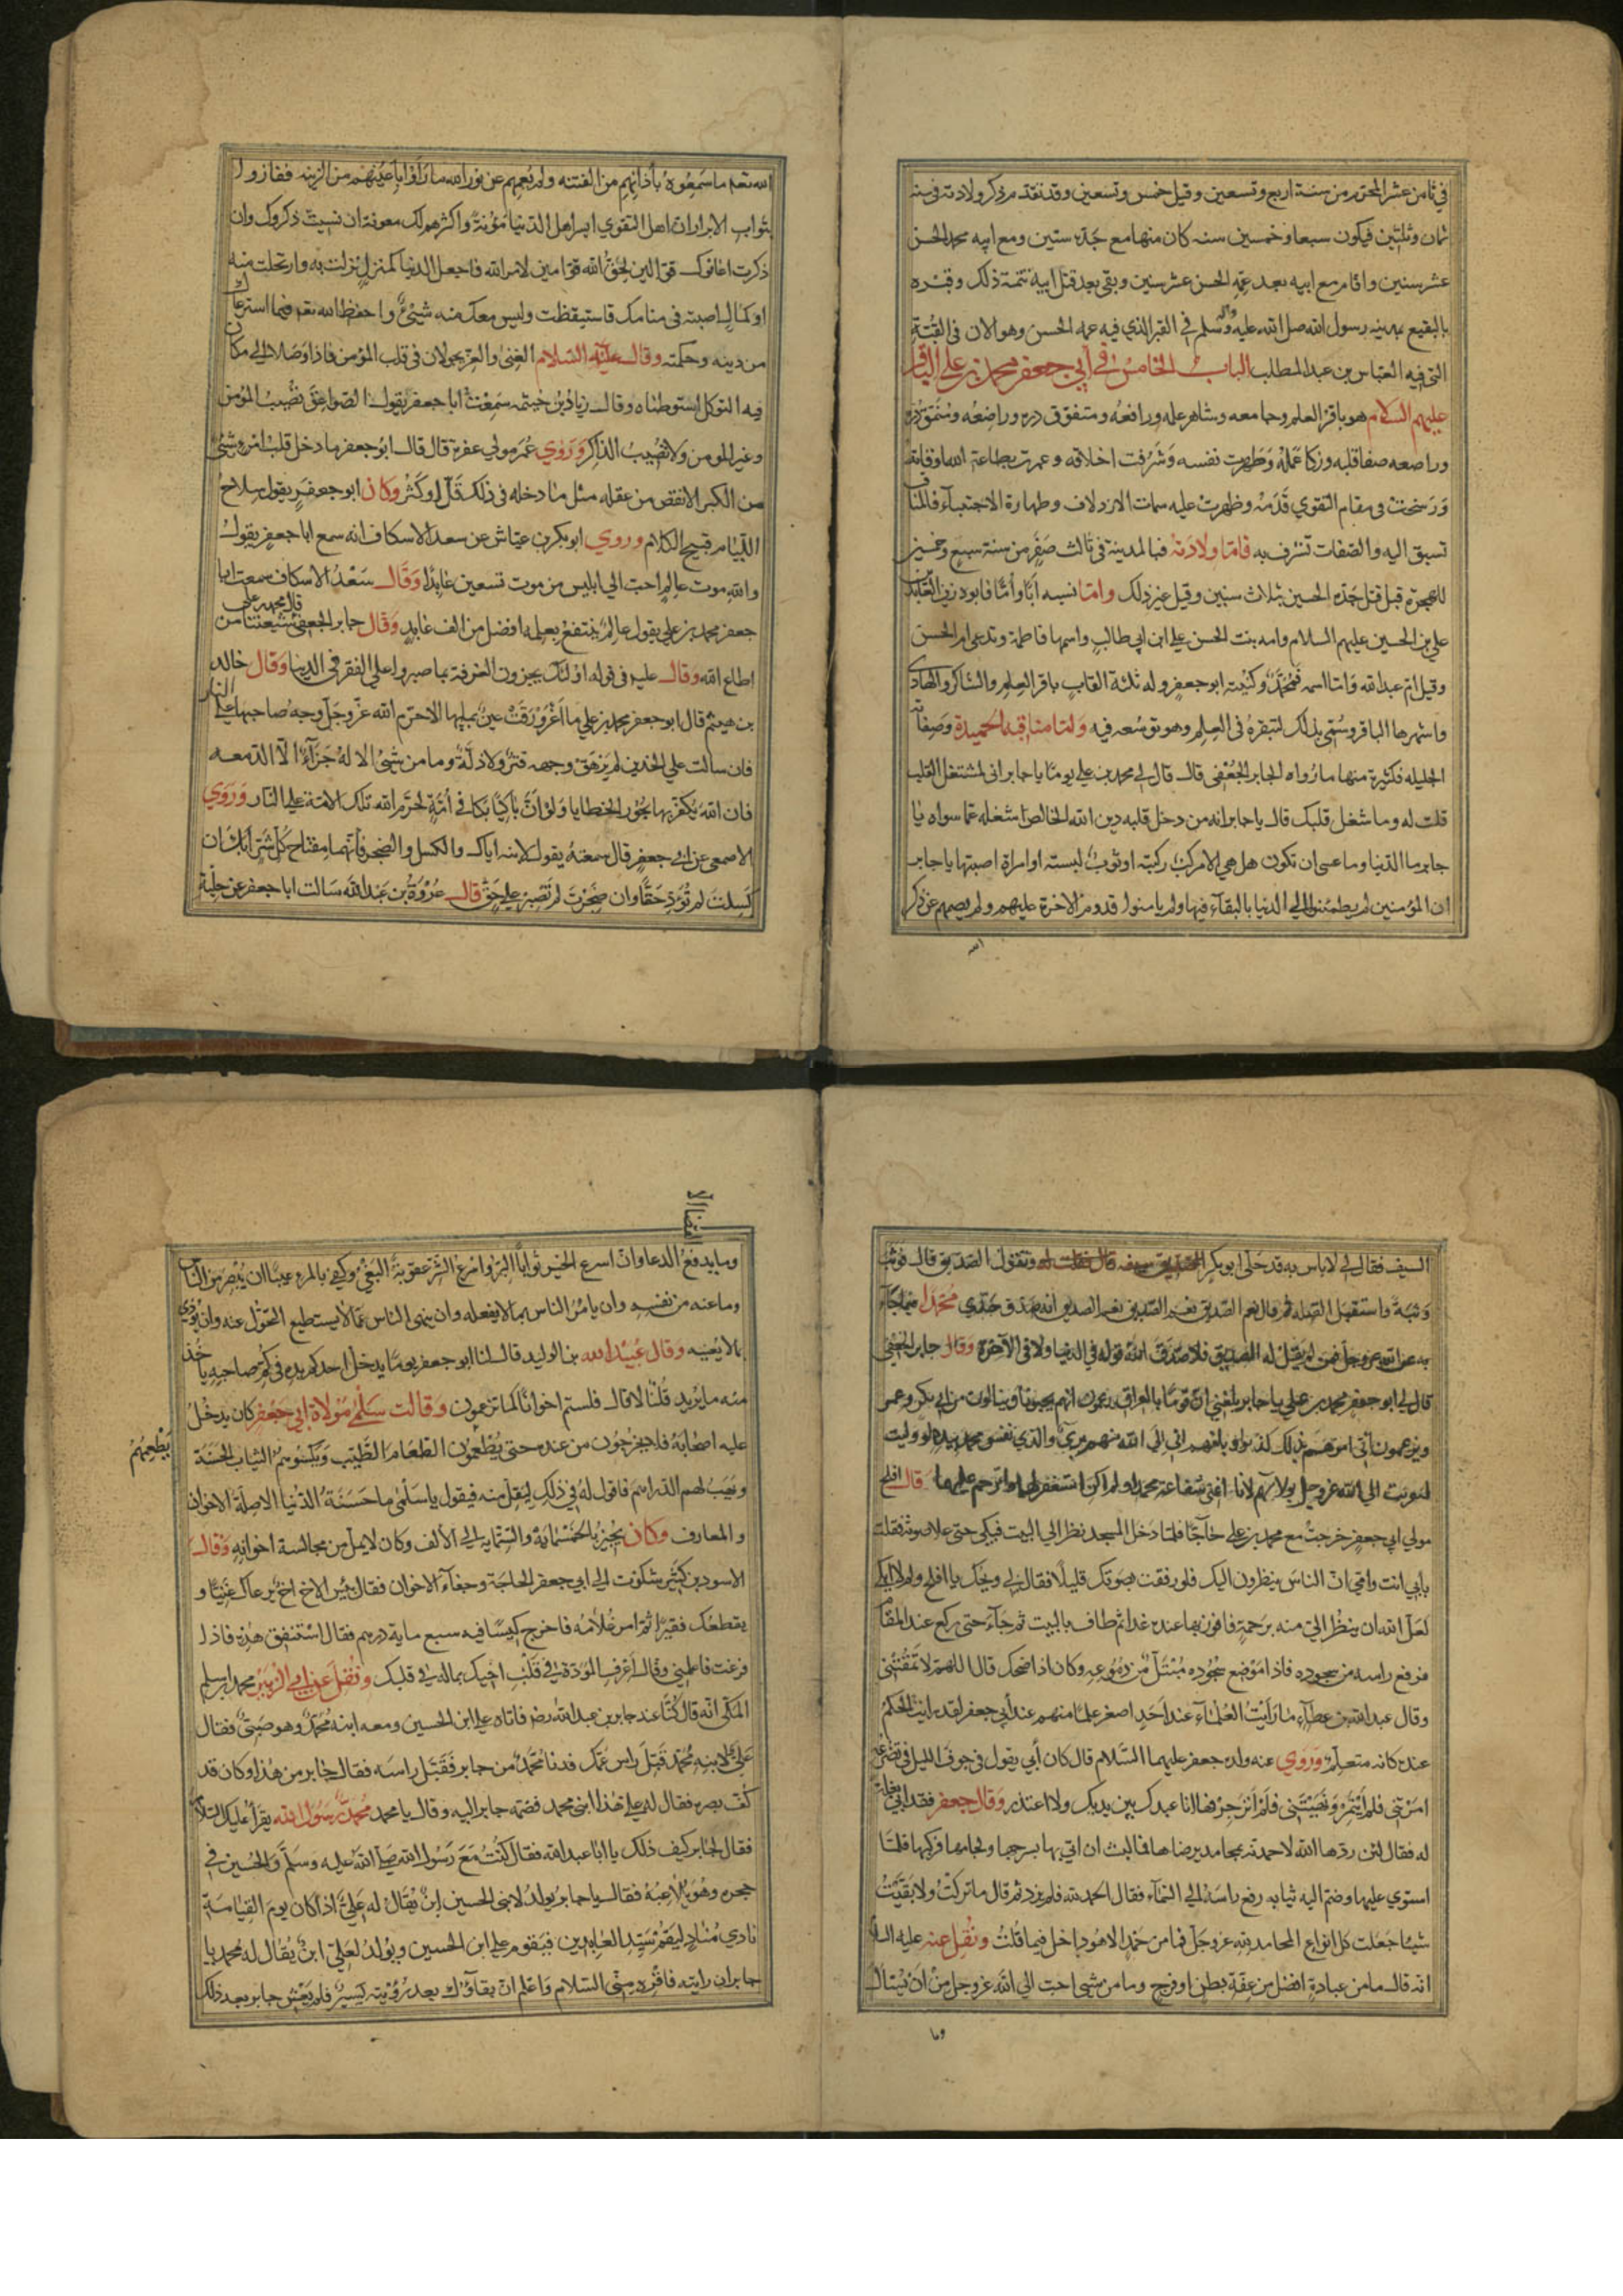 في ثامن عشر المحرم من سنة اربع وتسعين وقيل خمس وتسعين وقد تقدم ذكر ولادته في سنة
ثمان وثلثين فيكون سبعا وخمسين سنه كان منها مع جده سنتين ومع عمه الحسن
عشر سنين واقام مع ابيه بعد عمه الحسن عشر سنين وبقي بعد قتل ابيه تتمة ذلك وقبره
بالبقيع بمدينه رسول الله صلى الله عليه واله وسلم في القبر الذي فيه عمه الحسن وهو الان في القبة
التي فيه العباس بن عبد المطلب الباب الخامس في أبي جعفر محمد بن علي الباقر
عليهم السلام هو باقر العلم وجامعه وشاهر علمه ورافعه ومتفوق دره وراضعه ومنمق دره
وراصعه صفا قلبه وزكا عمله وطهرت نفسه وشرفت اخلاقه وعمرت بطاعة الله اوقاته
ورسخت في مقام التقوي قدمه وظهرت عليه سمات الازدلاف وطهارة الاجتباء فالمناقب
تسبق اليه والصفات تشرف به فاما ولادته فبالمدينة في ثالث صفر من سنة سبع وخمسين
للهجرة قبل قتل جده الحسين بثلاث سنين وقيل غير ذلك واما نسبه ابا واما فابوه زين العابدين
علي بن الحسين عليهم السلام وامه بنت الحسن بن علي ابن ابي طالب واسمها فاطمة وتدعى ام الحسن
وقيل ام عبد الله واما اسمه فمحمد وكنيته ابو جعفر وله ثلثة القاب باقر العلم والشاكر والهادي
واشهرها الباقر وسمي بذلك لتبقره في العلم وهو توسعه فيه ولما مناقبه الحميدة وصفاته
الجليله فكثيرة منها ما رواه الجابر الجعفي قال قال لي محمد بن علي يوما يا جابر اني لمشتغل القلب
قلت له وما شغل قلبك قال يا جابر انه من دخل قلبه دين الله الخالص اشغله عما سواه يا
جابر ما الدنيا وما عسى ان تكون هل هي الا مركب ركبته او ثوب لبسته او امراة اصبتها يا جابر
ان المؤمنين لم يطمئنوا الي الدنيا بالبقآء فيها ولم يامنوا قدوم الاخرة عليهم ولم يصمهم عن ذكر
الله
الله تعه ما سمعوه بأذانهم من الفتنه ولم يعمهم عن نور الله ما رأوا باعينهم من الزينه ففازوا
بثواب الابرار ان اهل التقوي ايسر اهل الدنيا مؤنة واكثرهم لك معونة ان نسيت ذكروك وان
ذكرت اعانوك قوالين لحق الله قوامين لامر الله فاجعل الدنيا كمنزل نزلت به وارتحلت منه
او كمال اصبته في منامك فاستيقظت وليس معك منه شيئ واحفظ الله تعه فيما استرعاك
من دينه وحكمته وقال عليه السلام الغنى والعز يجولان في قلب المؤمن فاذا وصلا الي مكان
فيه التوكل استوطناه وقال زياد بن خيثمه سمعت ابا جعفر يقول الصواعق تصيب المؤمن
وغير المومن ولا تصيب الذاكر وروي عمر مولي عفرة قال قال ابو جعفر ما دخل قلب امرء شئ
من الكبر الا نقص من عقله مثل ما دخله في ذلك قل او كثر وكان ابو جعفر يقول سلاح
اللئيام قبيح الكلام وروي ابو بكر بن عياش عن سعد الاسكاف انه سمع ابا جعفر يقول
والله موت عالم احب الي ابليس من موت تسعين عابدا وقال سعد الاسكاف سمعت ابا
جعفر محمد بن علي يقول عالم ينتفع بعلمه افضل من الف عابد وقال جابر الجعفي قال محمد بن علي شيعتنا من
اطاع الله وقال عليه في قوله اولئك يجزون الغرفة بما صبروا علي الفقر في الدنيا وقال خالد
بن هيثم قال ابو جعفر محمد بن علي ما اغرورقت عين بمايها الا حرم الله عز وجل وجه صاحبها علي النار
فان سالت علي الخدين لم يرهق وجهه قتر ولا ذلة وما من شئ الا له جزآء الا الدمعه
فان الله يكفر بها بحور الخطايا ولو ان باكيا بكا في أمة لحرم الله تلك الامة علي النار وروي
الاصمعي عن ابي جعفر قال سمعته يقول لابنه اياك والكسل والضجر فانهما مفتاح كل شر انك ان
كسلت لم تؤد حقا وان ضجرت لم تصبر علي حق قال عروة بن عبد الله سالت ابا جعفر عن حلية
السيف فقال لي لا باس به قد حلى ابو بكر الصديق سيفه قال فقلت له وتقول الصديق قال فوثب
وثبة واستقبل القبله ثم قال نعم الصديق نعم الصديق نعم الصديق
به عن الله عز وجل فمن لم يقل له الصديق فلا صدق الله قوله في الدنيا ولا في الآخرة وقال جابر الجعفي
قال لي ابو جعفر محمد بن علي يا جابر بلغني ان قوما بالعراق يزعمون انهم يحبوننا وينالون من ابي بكر وعمر
ويزعمون أني امرتهم بذلك كذبوا وبلغهم اني الي الله منهم برئ والذي نفس محمد بيده لو وليت
لتقربت الي الله عز وجل بدمائهم لا نالتني شفاعة محمد ان لم اكن استغفر لهما واترحم عليهما قال افلح
مولي ابي جعفر خرجت مع محمد بن علي حاجا فلما دخل المسجد نظر الي البيت فبكى حتى علا صوته فقلت
بابي انت وامي ان الناس ينظرون اليك فلو رفقت بصوتك قليلا فقال لي ويحك يا افلح ولم لا ابكي
لعل الله ان ينظر الي منه برحمة فافوز بها عنده غدا ثم طاف بالبيت ثم جآء حتى ركع عند المقام
فرفع راسه من سجوده فاذا موضع سجوده مبتل من دموعه وكان اذا ضحك قال اللهم لا تمقتني
وقال عبد الله بن عطآء ما رايت العلمآء عند احد اصغر علما منهم عند أبي جعفر لقد رايت الحكم
عنده كانه متعلم وروي عنه ولده جعفر عليهما السلام قال كان أبي يقول في جوف الليل في تضرعه
امرتني فلم ايتمر ونهيتني فلم انزجر ها انا عبدك بين يديك ولا اعتذر وقال جعفر فقد ابي بغلة
له فقال لئن ردها الله لاحمدنه بمحامد يرضاها فما لبث ان اتي بها بسرجها ولجامها فركبها فلما
استوي عليها وضم اليه ثيابه رفع راسه الي السمآء فقال الحمد لله فلم يزد ثم قال ما تركت ولا بقيت
شيئا جعلت كل انواع المحامد لله عز وجل فما من حمد الا هو داخل فيما قلت ونقل عنه عليه السلا
انه قال ما من عبادة افضل من عفة بطن او فرج وما من شئ احب الي الله عز وجل من ان يسأل
وما
وما يدفع القضا الا الدعا وان اسرع الخير ثوابا البر واسرع الشر عقوبة البغي وكفي بالمرء عيبا ان يبصر من الناس
وما عنه من نفسه وان يامر الناس بما لا يفعله وان ينهى الناس عما لا يستطيع التحول عنه وان يؤذي
بما لا يعنيه وقال عبيد الله بن الوليد قال لنا ابو جعفر يوما يدخل احدكم يده في كم صاحبه ياخذ
منه ما يريد قلنا لا قال فلستم اخوانا كما تزعمون وقالت سلمى مولاة ابي جعفر كان يدخل
عليه اصحابه فلا يخرجون من عنده حتى يطعمهم الطعام الطيب ويكسوهم الثياب الحسنة
ويهب لهم الدراهم فاقول له في ذلك ليقل منه فيقول يا سلمى ما حسنة الدنيا الا صلة الاخوان
والمعارف وكان يجيز بالخمسماية والستماية الي الالف وكان لا يمل من مجالسة اخوانه وقال
الاسود بن كثير شكوت الي ابي جعفر الحاجة وجفاء الاخوان فقال بئس الاخ اخ يرعاك غنيا و
يقطعك فقيرا ثم امر غلامه فاخرج كيسا فيه سبع ماية درهم فقال استنفق هذه فاذا
فرغت فاعلمني وقال اعرف المودة في قلب اخيك بماله في قلبك ونقل عن ابي الزبير محمد ابن مسلم
المكي انه قال كنا عند جابر بن عبد الله رضه فاتاه علي ابن الحسين ومعه ابنه محمد وهو صبي فقال
علي لابنه محمد قبل راس عمك فدنا محمد من جابر فقبل راسه فقال جابر من هذا وكان قد
كف بصره فقال له علي هذا ابني محمد فضمه جابر اليه وقال يا محمد محمد رسول الله يقرأ عليك السلام
فقال لجابر كيف ذلك يا ابا عبد الله فقال كنت مع رسول الله صلى الله عليه وسلم والحسين في
حجره وهو يلاعبه فقال يا جابر يولد لابني الحسين ابن يقال له علي اذا كان يوم القيامة
نادي مناد ليقم سيد العابدين فيقوم علي ابن الحسين ويولد لعلي ابن يقال له محمد يا
جابر ان رايته فاقره مني السلام واعلم ان بقاؤك بعد رؤيته يسير فلم يعش جابر بعد ذلك
يطعمهم